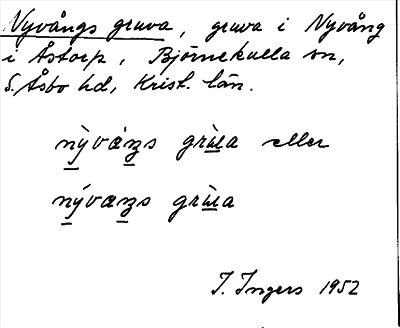 Nyvångs gruva, gruva i Nyvång
i Åstorp, Björnekulla sn,
S. Åsbo hd, Krist. län.
nỳváns grùa eller
nývæns grùa
I. Ingers 1952